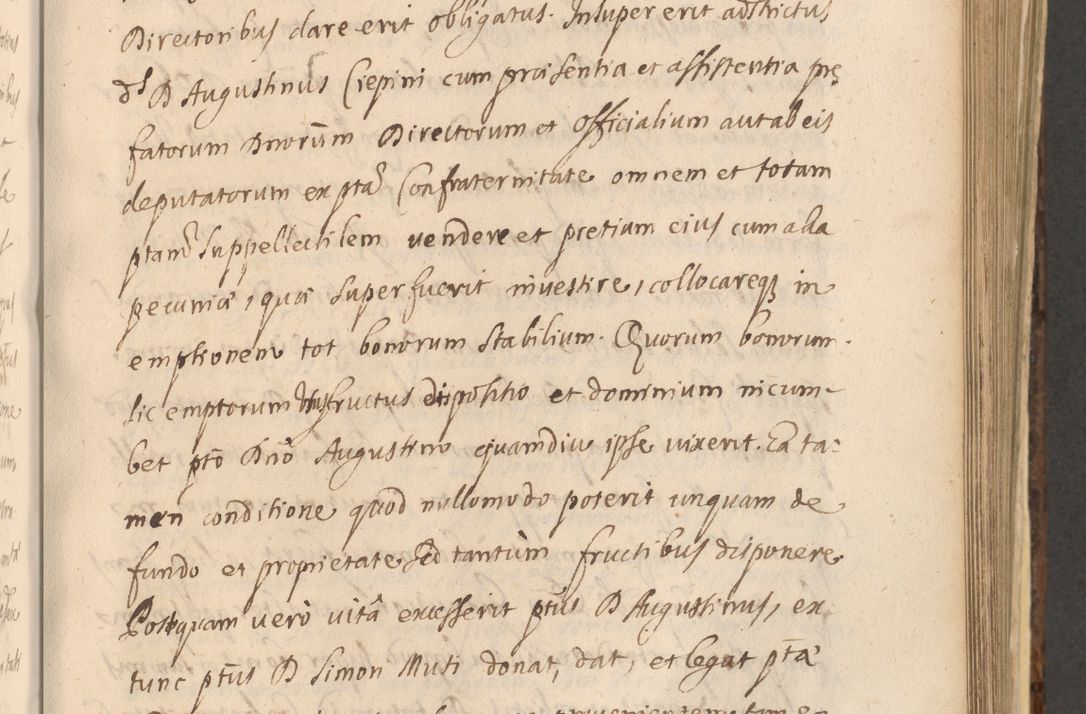 Directoribus dare erit obligatus. Insuper erit adstrictus
ds D Augustinus Crepini cum præsentia et assistentia præ
fatorum Dnorum Directorum et Officialium aut ab eis
deputatorum ex pta Confraternitate omnem et totam
ptam suppellectilem vendere et pretium eius cum alia
pecunia, quæ superfuerit investire, collocareq in
emptionem tot bonorum stabilium. Quorum bonorum
sic emptorum usufructus dispositio et dominium incum-
bet pto Dno Augustino quamdiu ipse vixerit. Ea ta-
men conditione quod nullomodo poterit unquam de
fundo et proprietate sed tantùm fructibus disponere
Postquam verò vitâ excesserit ptus D Augustinus, ex
tunc ptus D Simon Muti donat, dat, et legat ptæ